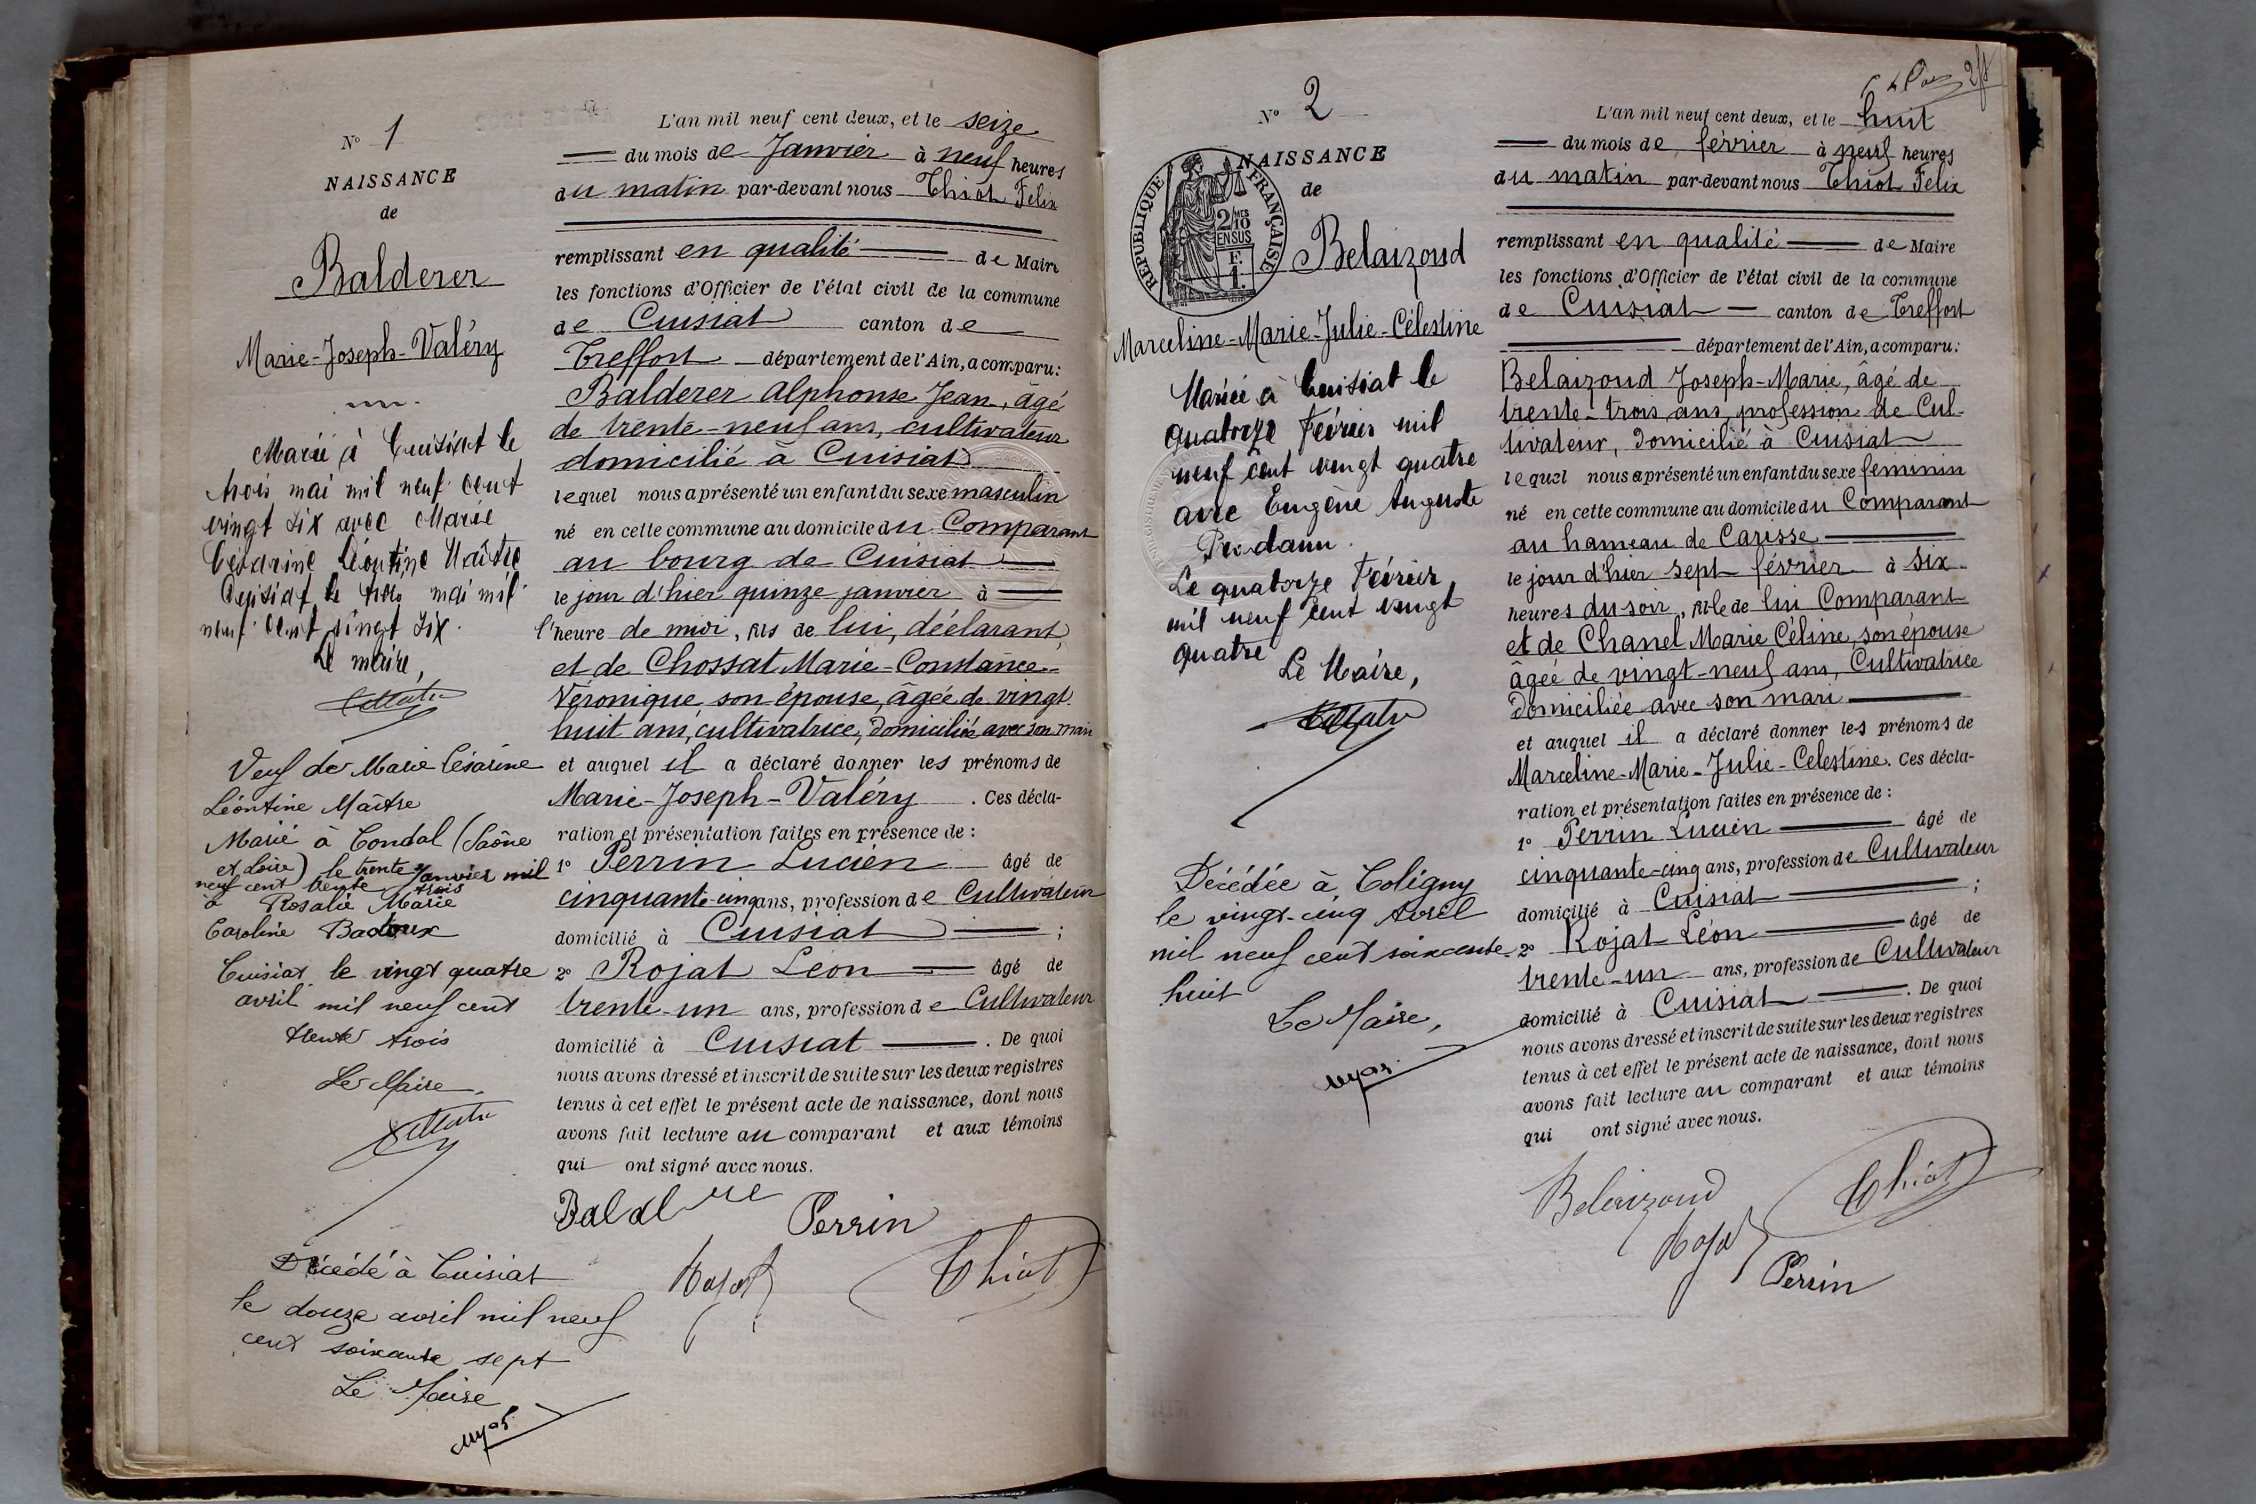 N° 1
NAISSANCE
de
Balderer
Marie-Joseph-Valéry
Marié à Cuisiat le
trois mai mil neuf cent
vingt six avec Marie
Césarine Léontine Maître
Cuisiat le trois mai mil
neuf cent vingt six.
Le maire,
Veuf de Marie Césarine
Léontine Maître
Marié à Condal (Saône
et Loire) le trente Janvier mil
neuf cent trente trois
à Rosalie Marie
Caroline Badoux
Cuisiat le vingt quatre
avril mil neuf cent
trente trois
Le Maire
Décédé à Cuisiat
le douze avril mil neuf
cent soixante sept
Le Maire
L'an mil neuf cent deux, et le seize
du mois de Janvier à neuf heures
du matin par-devant nous Thiot Félix
remplissant en qualité de Maire
les fonctions d'Officier de l'état civil de la commune
de Cuisiat canton de
Treffort département de l'Ain, a comparu:
Balderer Alphonse Jean, âgé
de trente-neuf ans, cultivateur
domicilié à Cuisiat
lequel nous a présenté un enfant du sexe masculin
né en cette commune au domicile du Comparant
au bourg de Cuisiat
le jour d'hier quinze janvier à
l'heure de midi, fils de lui, déclarant,
et de Chossat Marie-Constance-
Véronique son épouse, âgée de vingt
huit ans, cultivatrice, domiciliée avec son mari
et auquel il a déclaré donner les prénoms de
Marie-Joseph-Valéry. Ces décla-
ration et présentation faites en présence de :
1° Perrin Lucien âgé de
cinquante-cinq ans, profession de Cultivateur
domicilié à Cuisiat ;
2° Rojat Léon âgé de
trente-un ans, profession de Cultivateur
domicilié à Cuisiat. De quoi
nous avons dressé et inscrit de suite sur les deux registres
tenus à cet effet le présent acte de naissance, dont nous
avons fait lecture au comparant et aux témoins
qui ont signé avec nous.
Perrin
Rojat
Thiot
N° 2
NAISSANCE
de
RÉPUBLIQUE FRANÇAISE
2/10
EN SUS
F.
1.
Belaizoud
Marceline-Marie-Julie-Célestine
Mariée à Cuisiat le
quatorze Février mil
neuf cent vingt quatre
avec Eugène Auguste
Le quatorze Février
mil neuf cent vingt
quatre
Le Maire,
Décédée à Coligny
le vingt-cinq Avril
mil neuf cent soixante-
huit
Le Maire,
L'an mil neuf cent deux, et le huit
du mois de février à neuf heures
du matin par-devant nous Thiot Félix
remplissant en qualité de Maire
les fonctions d'Officier de l'état civil de la commune
de Cuisiat canton de Treffort
département de l'Ain, a comparu:
Belaizoud Joseph-Marie, âgé de
trente-trois ans, profession de Cul-
tivateur, domicilié à Cuisiat
lequel nous a présenté un enfant du sexe féminin
né en cette commune au domicile du Comparant
au hameau de Carisse
le jour d'hier sept février à six
heures du soir, fille de lui Comparant
et de Chanel Marie Céline, son épouse
âgée de vingt-neuf ans, Cultivatrice
domiciliée avec son mari
et auquel il a déclaré donner les prénoms de
Marceline-Marie-Julie-Celestine. Ces décla-
ration et présentation faites en présence de :
1° Perrin Lucien âgé de
cinquante-cinq ans, profession de Cultivateur
domicilié à Cuisiat ;
2° Rojat Léon âgé de
trente-un ans, profession de Cultivateur
domicilié à Cuisiat. De quoi
nous avons dressé et inscrit de suite sur les deux registres
tenus à cet effet le présent acte de naissance, dont nous
avons fait lecture au comparant et aux témoins
qui ont signé avec nous.
Belaizoud
Thiot
Rojat
Perrin